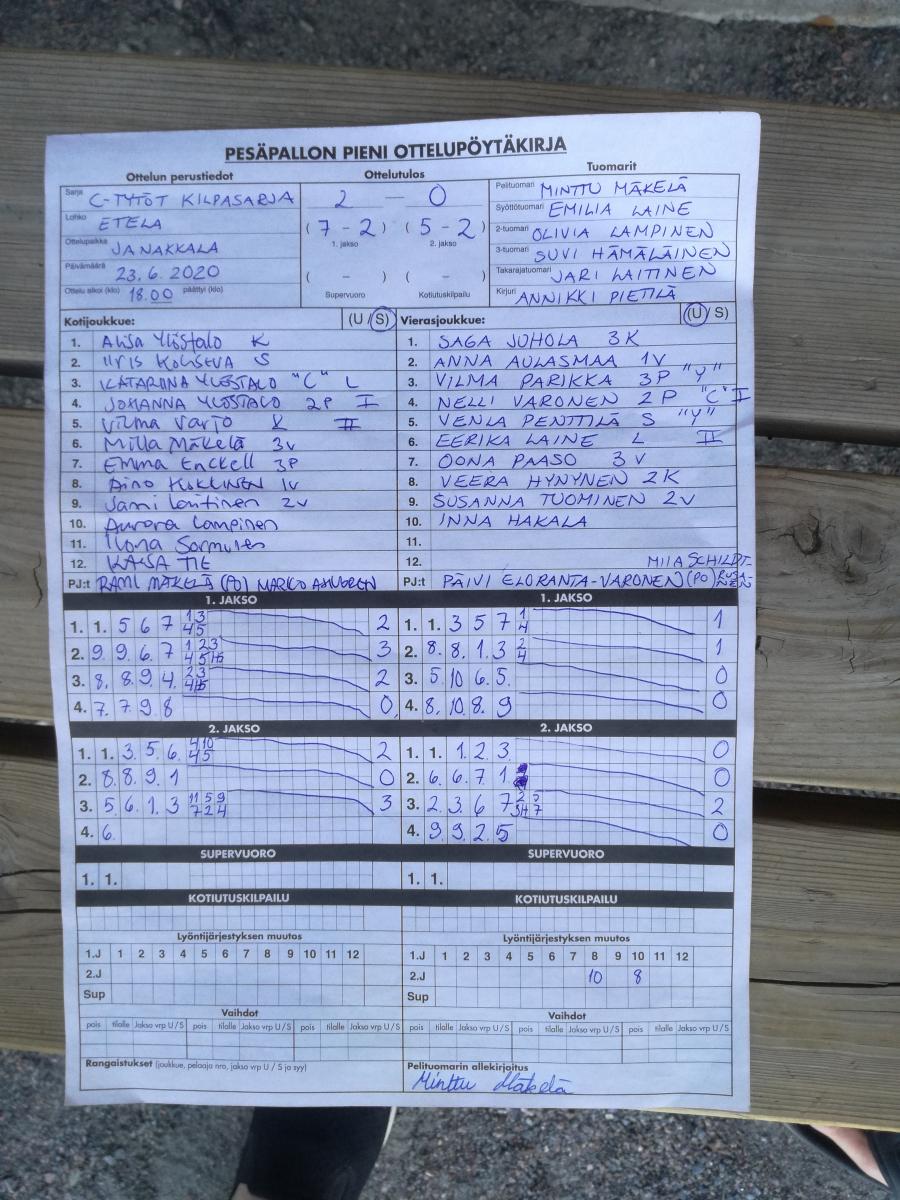 PESÄPALLON PIENI OTTELUPÖYTÄKIRJA
Ottelun perustiedot Ottelutulos Tuomarit
Sarja C-TYTÖT KILPASARJA
Lohko ETELÄ
Ottelupaikka JANAKKALA
Päivämäärä 23.6.2020
Ottelu alkoi (klo) 18.00 päättyi (klo)
2 — 0
(7 - 2) (5 - 2)
1. jakso 2. jakso
( - ) ( - )
Supervuoro Kotiutuskilpailu
Pelituomari MINTTU MÄKELÄ
Syöttötuomari EMILIA LAINE
2-tuomari OLIVIA LAMPINEN
3-tuomari SUVI HÄMÄLÄINEN
Takarajatuomari JARI LAITINEN
Kirjuri ANNIKKI PIETILÄ
Kotijoukkue: (U / S)
1. Alisa Ylöstalo K
2. S
3. KATARIINA YLÖSTALO "C" L
4. JOHANNA YLÖSTALO 2P I
5. Vilma Varjo K II
6. Milla Mäkelä 3V
7. Emma Enckell 3P
8. Aino 1V
9. Jami Laitinen 2V
10. Aurora Lampinen
11. Ilona
12. KAISA TIE
PJ:t RAMI MÄKELÄ (PO) MARKO AHLGREN
Vierasjoukkue: (U / S)
1. SAGA JUHOLA 3K
2. ANNA AULASMAA 1V
3. VILMA PARIKKA 3P "Y"
4. NELLI VARONEN 2P "C" I
5. VENLA PENTTILÄ S "Y"
6. EERIKA LAINE L II
7. OONA PAASO 3V
8. VEERA HYNYNEN 2K
9. SUSANNA TUOMINEN 2V
10. INNA HAKALA
11.
12. MIIA SCHILDT-
PJ:t PÄIVI ELORANTA-VARONEN (PO)
1. JAKSO 1. JAKSO
1. 1. 5 6 7 1 3 2
4 5
2. 9. 9. 6. 7 1 2 3 3
4 5
3. 8. 8. 9 4. 2 3 2
4
4. 7. 7. 9 8 0
1. 1. 3 5 7 1 1
4
2. 8. 8. 1. 3 2 1
4
3. 5. 10 6. 5. 0
4. 8. 10. 8. 9 0
2. JAKSO 2. JAKSO
1. 1. 3. 5. 6. 4 10 2
4 5
2. 8. 8. 9. 1 0
3. 5. 6. 1. 3 11 5 9 3
7 2 4
4. 6.
1. 1. 1. 2. 3. 0
2. 6. 6. 7 1 0
3. 2. 3 6 7 2
4. 9. 9 2. 5 0
SUPERVUORO SUPERVUORO
1. 1. 1. 1.
KOTIUTUSKILPAILU KOTIUTUSKILPAILU
Lyöntijärjestyksen muutos Lyöntijärjestyksen muutos
1.J 1 2 3 4 5 6 7 8 9 10 11 12 1.J 1 2 3 4 5 6 7 8 9 10 11 12
2.J 2.J 10 8
Sup Sup
Vaihdot Vaihdot
pois tilalle Jakso vrp U / S pois tilalle Jakso vrp U / S pois tilalle Jakso vrp U / S pois tilalle Jakso vrp U / S pois tilalle Jakso vrp U / S pois tilalle Jakso vrp U / S
Rangaistukset (joukkue, pelaaja nro, jakso vrp U / S ja syy) Pelituomarin allekirjoitus
Minttu Mäkelä